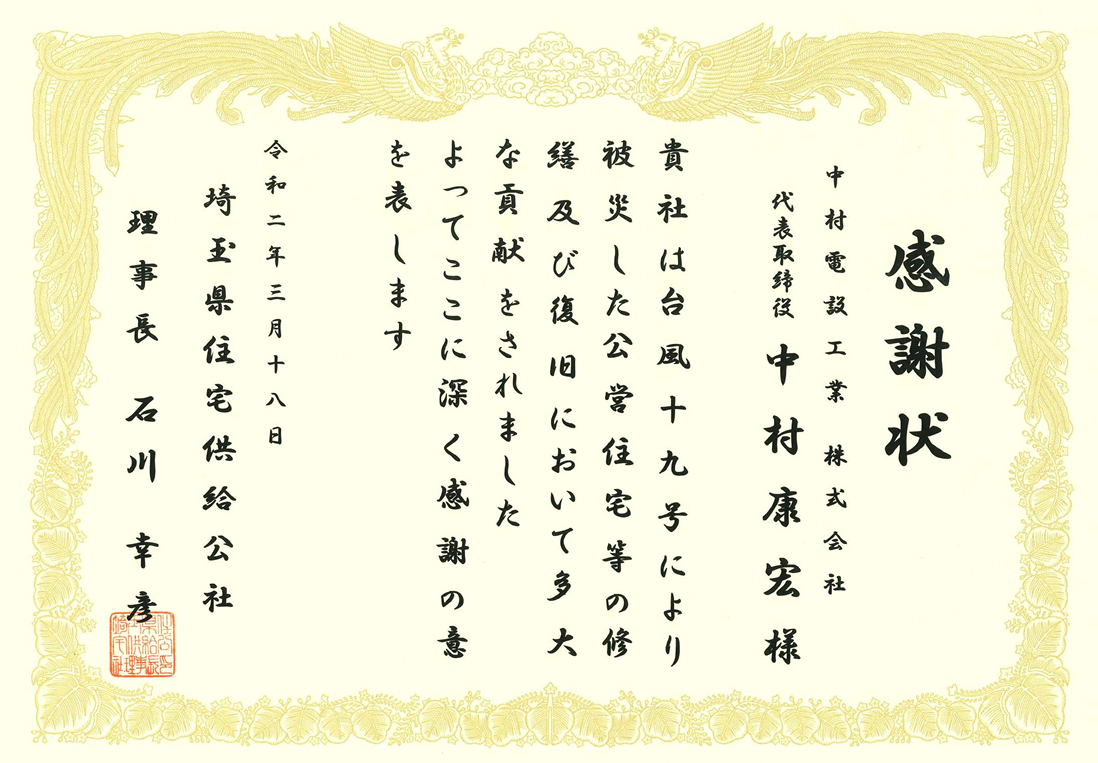 感謝状
中村電設工業 株式会社
代表取締役 中村康宏様
貴社は台風十九号により
被災した公営住宅等の修
繕及び復旧において多大
な貢献をされました
よってここに深く感謝の意
を表します
令和二年三月十八日
埼玉県住宅供給公社
理事長 石川 幸彦